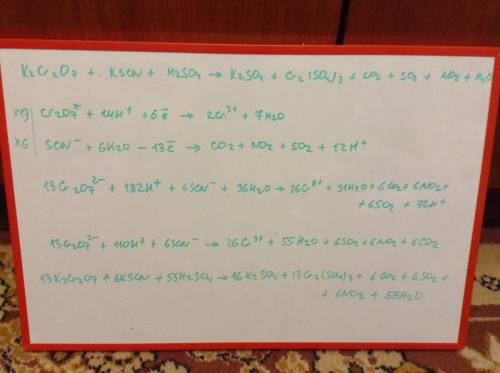 K2Cr2O7 + KSCN + H2SO4 → K2SO4 + Cr2(SO4)3 + CO2 + SO2 + NO2 + H2O
x13| Cr2O7²⁻ + 14H⁺ + 6ē → 2Cr³⁺ + 7H2O
x6 | SCN⁻ + 6H2O - 13ē → CO2 + NO2 + SO2 + 12H⁺
13Cr2O7²⁻ + 182H⁺ + 6SCN⁻ + 36H2O → 26Cr³⁺ + 91H2O + 6CO2 + 6NO2 +
+ 6SO2 + 72H⁺
13Cr2O7²⁻ + 110H⁺ + 6SCN⁻ → 26Cr³⁺ + 55H2O + 6SO2 + 6NO2 + 6CO2
13K2Cr2O7 + 6KSCN + 55H2SO4 → 16K2SO4 + 13Cr2(SO4)3 + 6CO2 + 6SO2 +
+ 6NO2 + 55H2O